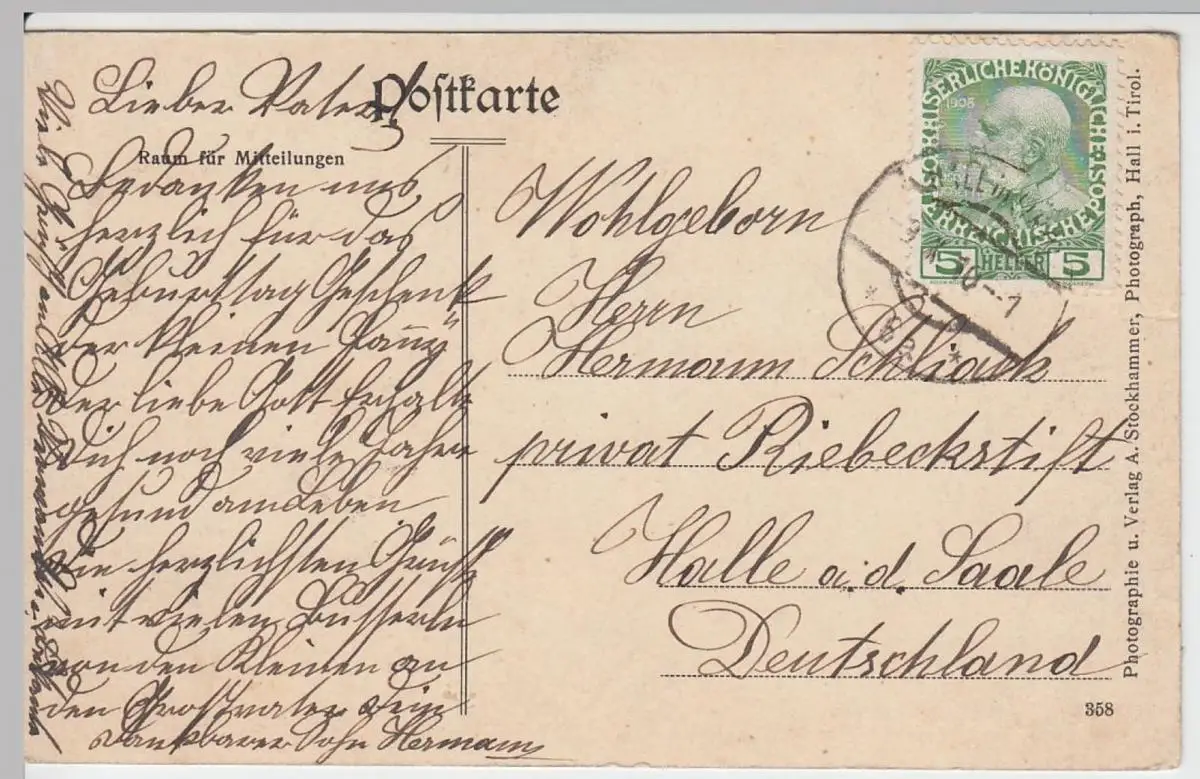 Postkarte
Raum für Mitteilungen
Lieber Vater!
Bedanken uns
herzlich für das
Geburtstag Geschenk
der kleinen Fanny
der liebe Gott Erhalte
Dich noch viele Jahre
gesund am Leben
die herzlichsten Grüße
mit vielen Busserln
von den Kleinen an
den Großvater Dein
Dankbarer Sohn Hermann
Viele Grüße
Wohlgeborn
Herrn
Hermann Schliack
privat Riebeckstift
Halle a.d. Saale
Deutschland
KAISERLICHE KÖNIGLICHE
ÖSTERREICHISCHE POST
1908
5 HELLER 5
HALL in
10
Photographie u. Verlag A. Stockhammer, Photograph, Hall i. Tirol.
358